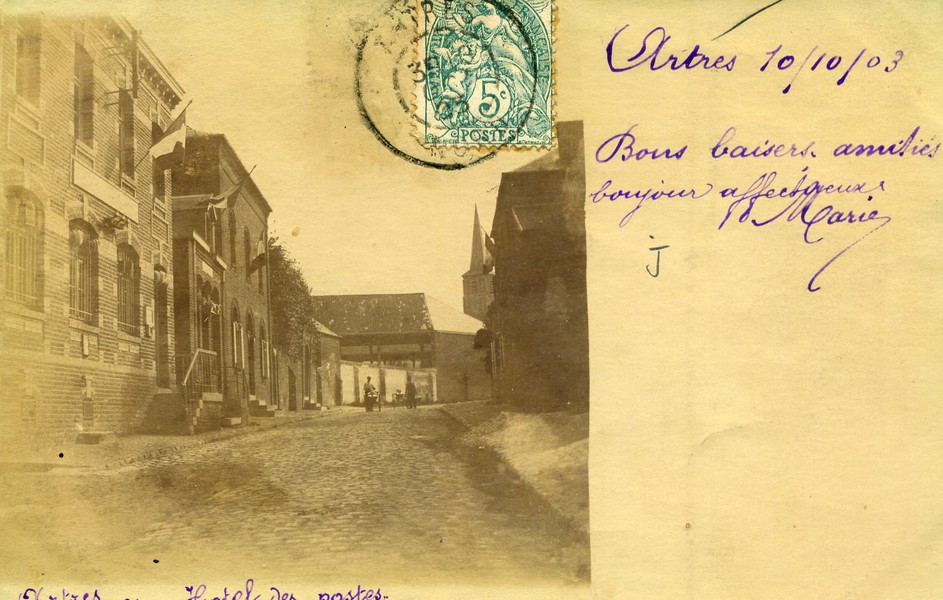 Artres 10/10/03
Bons baisers. amitiés
bonjour affectueux.
Marie
J
5c
POSTES
Artres Hotel des postes.